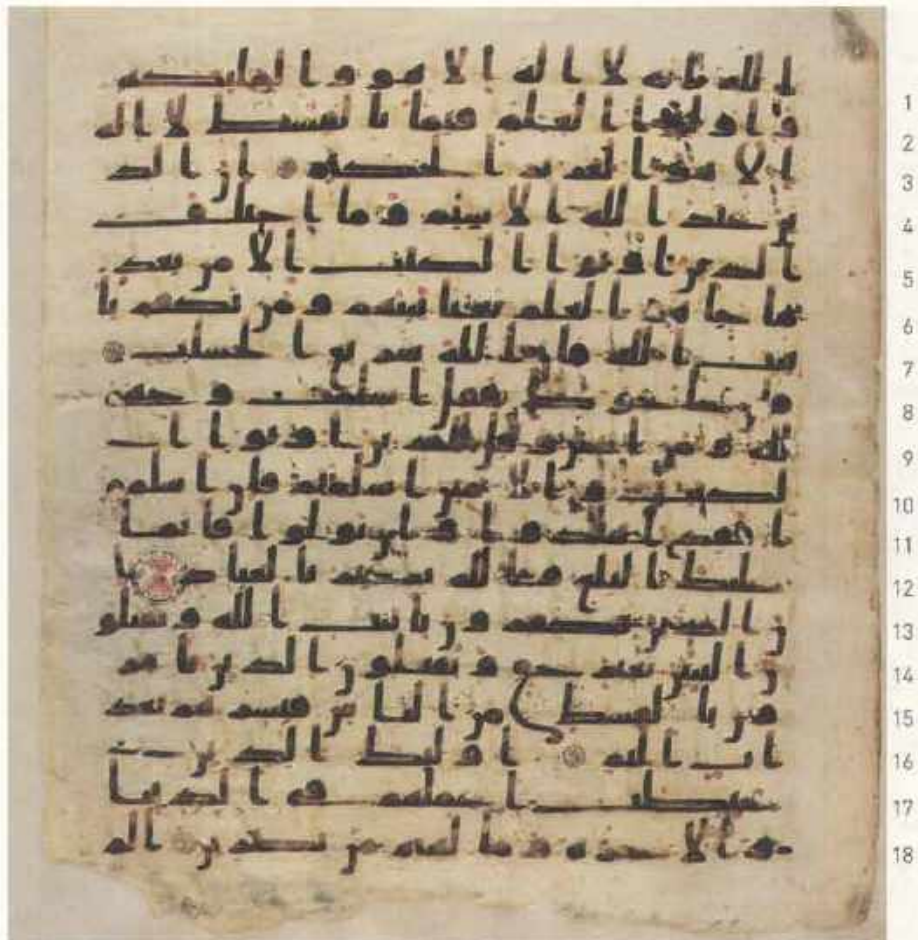 الله انه لا اله الا هو والملئكه
1
واولوا العلم قيما بالقسط لا اله
2
الا هو العزيز الحكيم ان الد
3
ين عند الله الاسلم وما اختلف
4
الذين اوتوا الكتب الا من بعد
5
ما جاهم العلم بغيا بينهم ومن يكفر با
6
يت الله فان الله سريع الحساب
7
فان حاجوك فقل اسلمت وجهي
8
لله ومن اتبعن وقل للذين اوتوا ا
9
لكتب والامين اسلمتم فان اسلمو
10
ا فقد اهتدوا وان تولوا فانما
11
عليك البلغ والله بصير بالعباد ا
12
ن الذين يكفرون بايت الله ويقتلو
13
ن النبين بغير حق ويقتلون الذين يامر
14
ون بالقسط من الناس فبشرهم بعذ
15
اب اليم اولئك الذين
16
حبطت اعملهم في الدنيا
17
والاخره وما لهم من نصرين الم
18